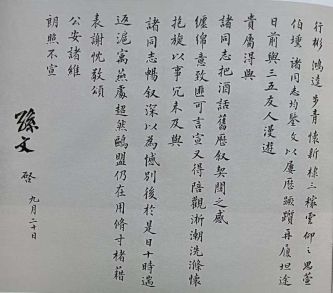 行彬 鴻逵 步青 懷新 棣三 稼雲 仰之 思萱
伯壎 諸同志均鑒 文以屢歷顛躓再履坦途
日前與三五友人漫遊
貴廬得與
諸同志把酒話舊歷叙契闊之感
僾綿意致匪可言宣又得陪觀浙潮洗滌懷
抱旋以事冗未及與
諸同志暢叙深以為憾別後於是日十時過
返滬寓蕉處超然鷗盟仍在用脩寸楮藉
表謝忱敬頌
公安諸維
朗照不宣
孫文 啓
九月二十日